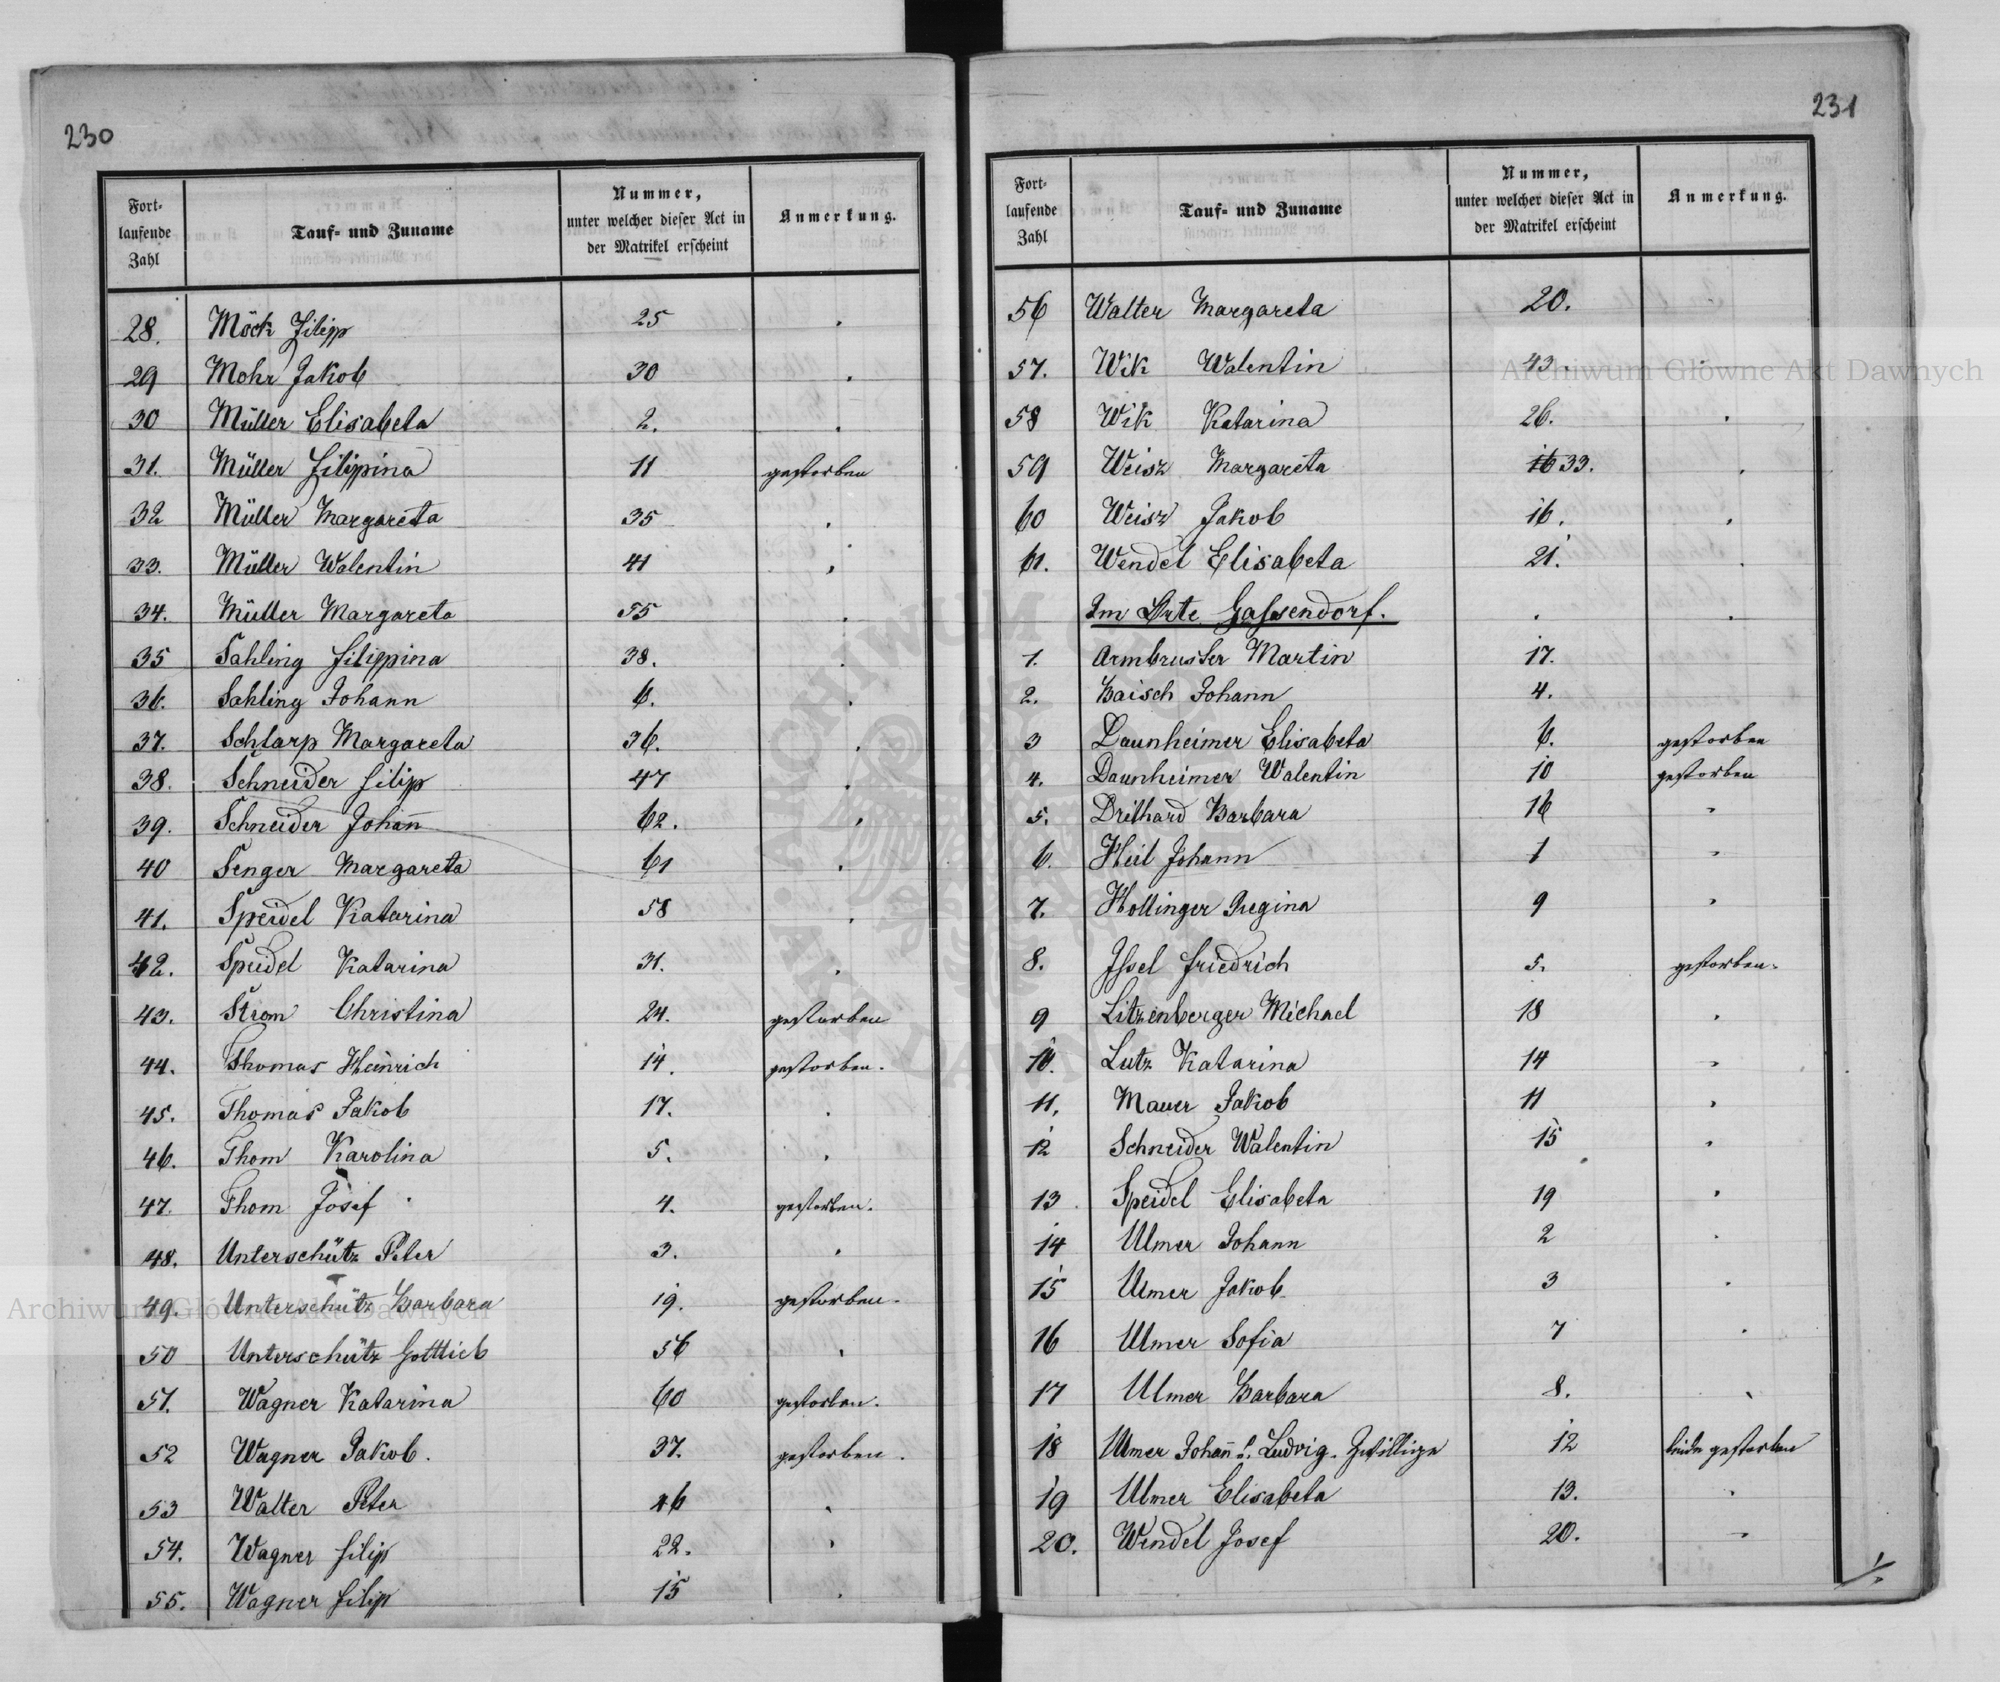 230
Fort-
laufende
Zahl
Tauf- und Zuname
Nummer,
unter welcher dieser Act in
der Matrikel erscheint
Anmerkung.
28. Möck Filipp 25 .
29 Mohr Jakob 30 .
30 Müller Elisabeta 2. .
31. Müller Filippina 11 gestorben
32 Müller Margareta 35 .
33. Müller Walentin 41 .
34. Müller Margareta 55 .
35 Sahling Filippina 38. .
36. Sahling Johann 6. .
37. Schlarp Margareta 36. .
38. Schneider Filip 47 .
39. Schneider Johan̄ 62. .
40 Senger Margareta 61 .
41. Speidel Katarina 58 .
42. Speidel Katarina 31. .
43. Strom Christina 24. gestorben
44. Thomas Heinrich 14. gestorben.
45. Thomas Jakob 17. .
46. Thom Karolina 5. .
47. Thom Josef 4. gestorben.
48. Unterschütz Peter 3. .
49. Unterschütz Barbara 19. gestorben.
50 Unterschütz Gottlieb 56 .
51. Wagner Katarina 60 gestorben.
52 Wagner Jakob. 37. gestorben.
53 Walter Peter 46 .
54. Wagner Filip 22. .
55. Wagner Filip 15 .
231
Fort-
laufende
Zahl
Tauf- und Zuname
Nummer,
unter welcher dieser Act in
der Matrikel erscheint
Anmerkung.
56 Walter Margareta 20.
57. Wik Walentin 43.
58 Wik Katarina 26. .
59 Weisz Margareta 16 33. .
60 Weisz Jakob 16. .
61. Wendel Elisabeta 21. .
Im Orte Gassendorf. . .
1. Armbruster Martin 17.
2. Baisch Johann 4.
3 Daunheimer Elisabeta 6. gestorben
4. Daunheimer Walentin 10 gestorben
5. Dreihard Barbara 16 "
6. Heil Johann 1 "
7. Hollinger Regina 9 "
8. Issel Friedrich 5. gestorben.
9 Litzenberger Michael 18 "
10. Lutz Katarina 14 "
11. Mauer Jakob 11 "
12 Schneider Walentin 15 "
13 Speidel Elisabeta 19 "
14 Ulmer Johann 2 .
15 Ulmer Jakob 3 .
16 Ulmer Sofia 7 .
17 Ulmer Barbara 8. "
18 Ulmer Johan̄ & Ludvig. Zwillinge 12 beide gestorben
19 Ulmer Elisabeta 13. "
20. Wendel Josef 20. "
Archiwum Główne Akt Dawnych
Archiwum Główne Akt Dawnych